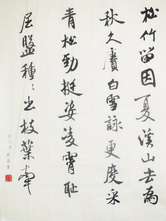 松竹留因夏溪山去為
秋久賡白雪詠更度采
青松勁挺姿凌霄恥
屈盤種種出枝葉牽